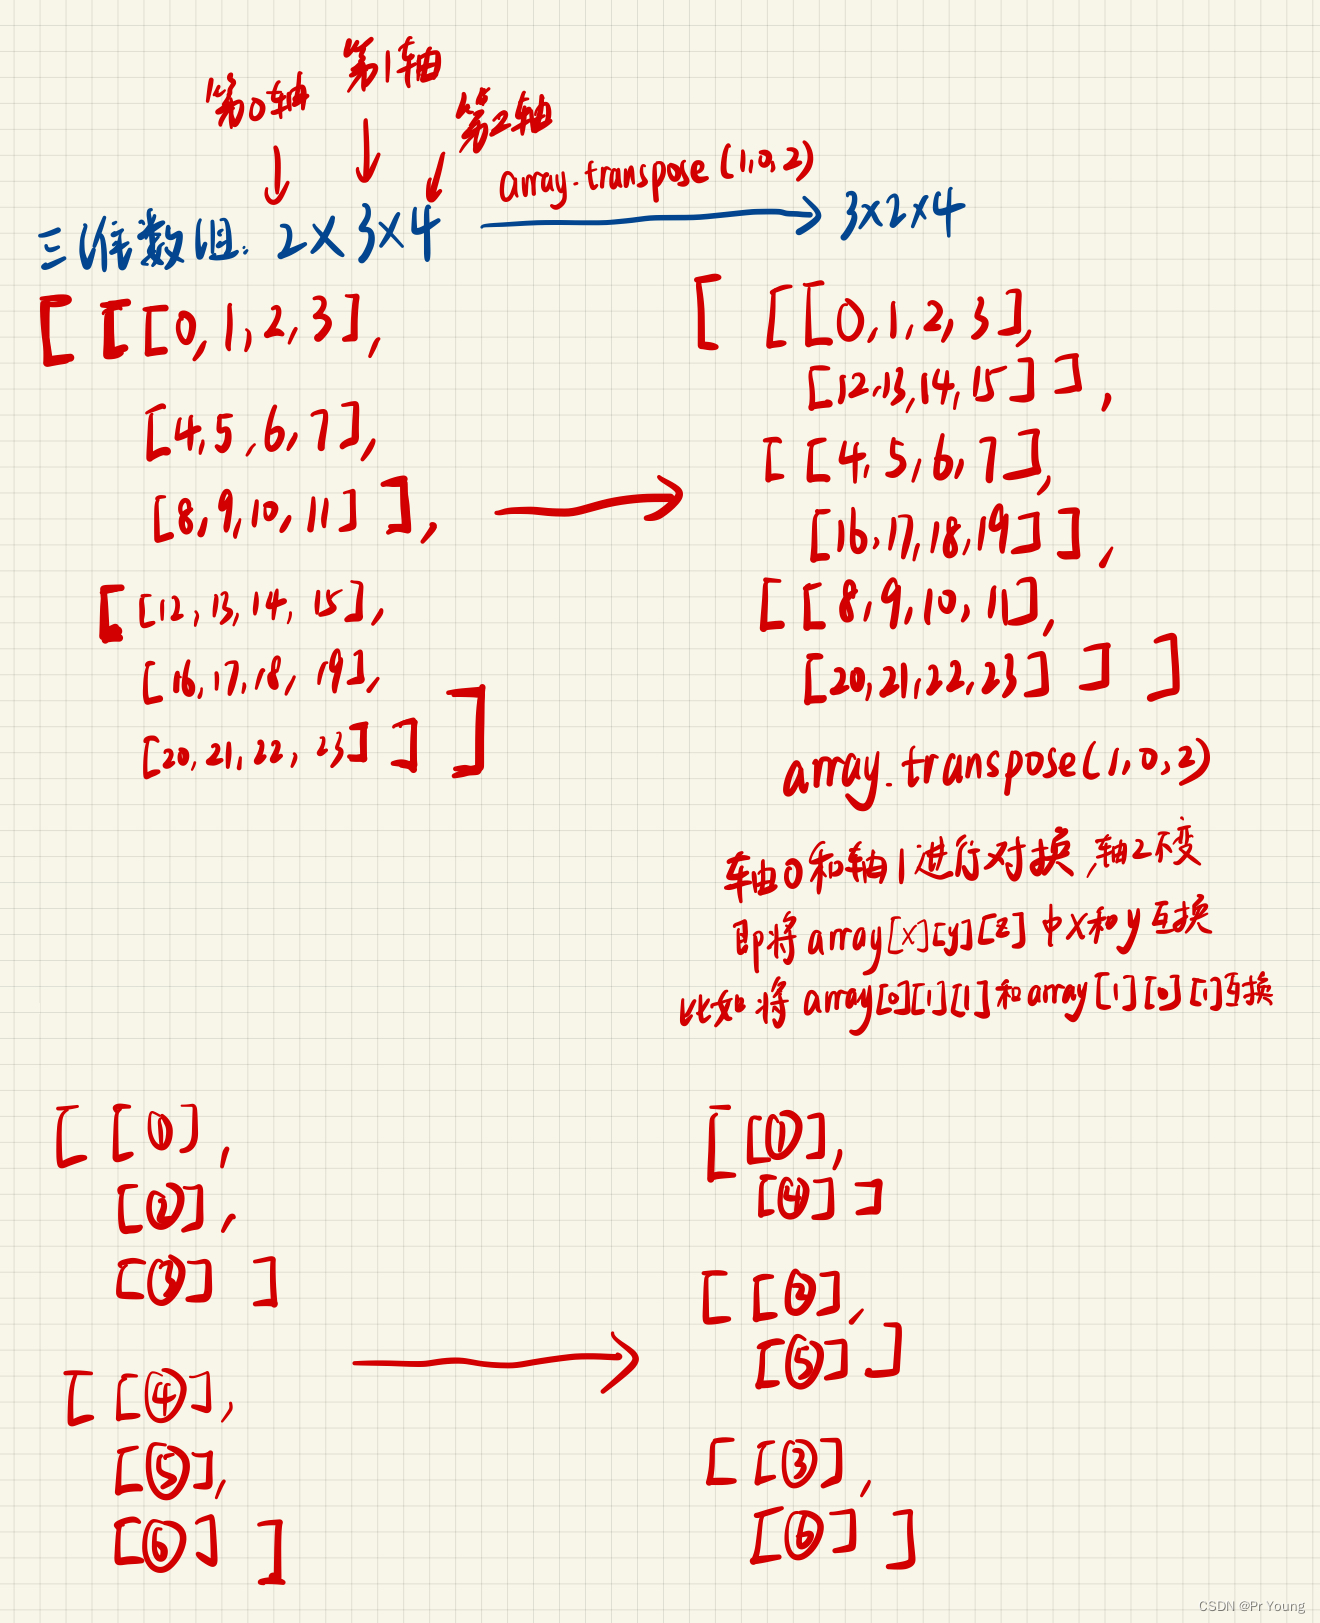 第0轴
第1轴
第2轴
array.transpose(1,0,2)
三维数组: 2×3×4
3×2×4
[ [ [0, 1, 2, 3],
[4, 5, 6, 7],
[8, 9, 10, 11] ],
[ [12, 13, 14, 15],
[16, 17, 18, 19],
[20, 21, 22, 23] ] ]
[ [ [0, 1, 2, 3],
[12, 13, 14, 15] ],
[ [4, 5, 6, 7],
[16, 17, 18, 19] ],
[ [8, 9, 10, 11],
[20, 21, 22, 23] ] ]
array.transpose(1,0,2)
轴0和轴1进行对换,轴2不变
即将array[x][y][z]中x和y互换
比如将array[0][1][1]和array[1][0][1]互换
[ [①],
[②],
[③] ]
[ [④],
[⑤],
[⑥] ]
[ [①],
[④] ]
[ [②],
[⑤] ]
[ [③],
[⑥] ]
CSDN @Pr Young